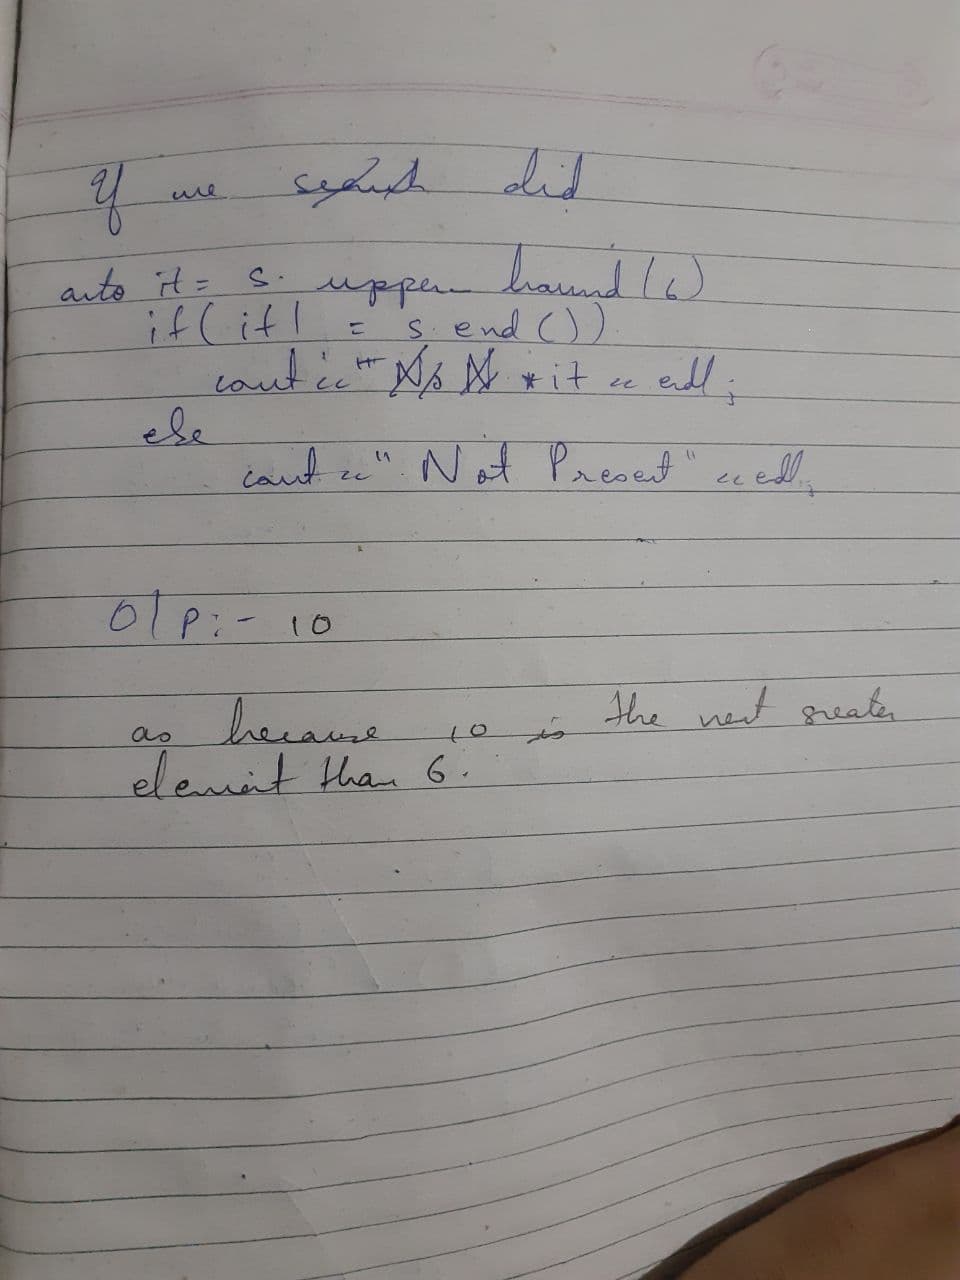 If we did
auto it = s. upper bound (6)
if( it != s. end ())
cout << *it << endl ;
else
cout << " Not Present" << endl;
O/P:- 10
as because 10 is the next greater
element than 6.